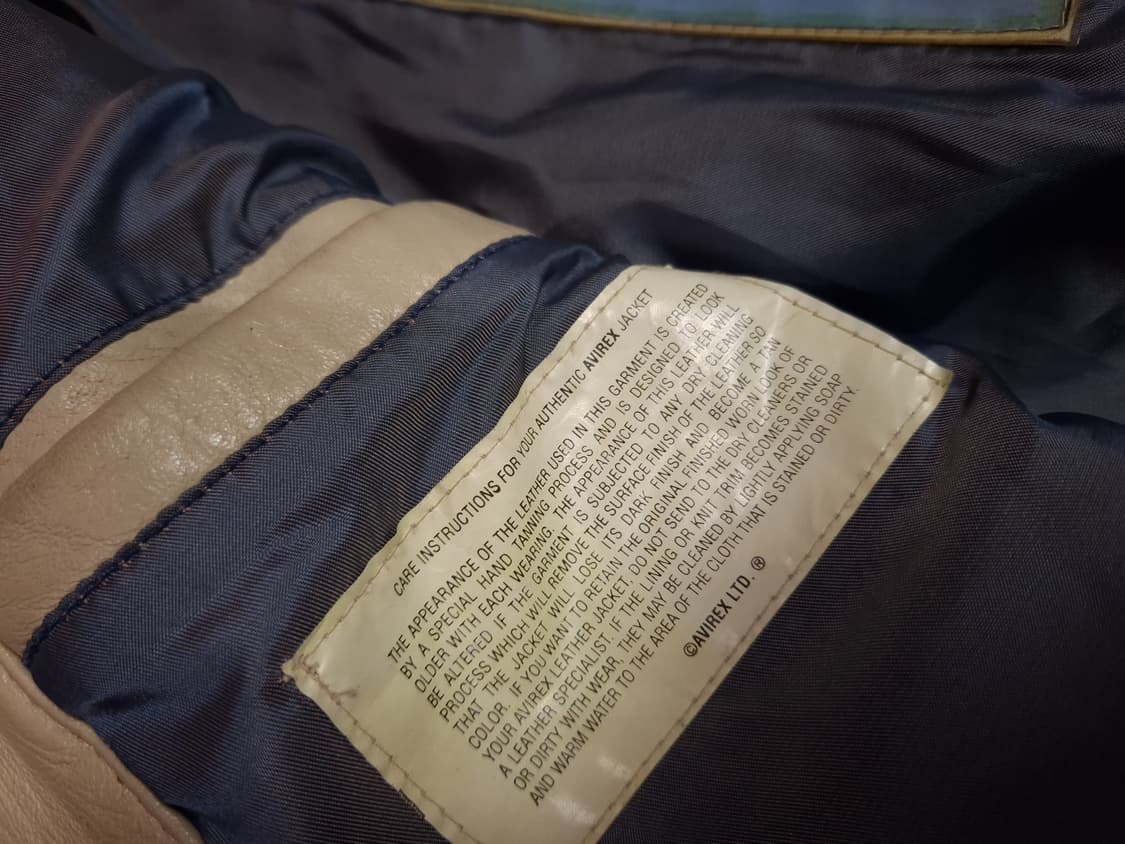 CARE INSTRUCTIONS FOR YOUR AUTHENTIC AVIREX JACKET
THE APPEARANCE OF THE LEATHER USED IN THIS GARMENT IS CREATED
BY A SPECIAL HAND TANNING PROCESS AND IS DESIGNED TO LOOK
OLDER WITH EACH WEARING. THE APPEARANCE OF THIS LEATHER WILL
BE ALTERED IF THE GARMENT IS SUBJECTED TO ANY DRY CLEANING
PROCESS WHICH WILL REMOVE THE SURFACE FINISH OF THE LEATHER SO
THAT THE JACKET WILL LOSE ITS DARK FINISH AND BECOME A TAN
COLOR. IF YOU WANT TO RETAIN THE ORIGINAL FINISHED WORN LOOK OF
YOUR AVIREX LEATHER JACKET, DO NOT SEND TO THE DRY CLEANERS OR
A LEATHER SPECIALIST. IF THE LINING OR KNIT TRIM BECOMES STAINED
OR DIRTY WITH WEAR, THEY MAY BE CLEANED BY LIGHTLY APPLYING SOAP
AND WARM WATER TO THE AREA OF THE CLOTH THAT IS STAINED OR DIRTY.
©AVIREX LTD. ®